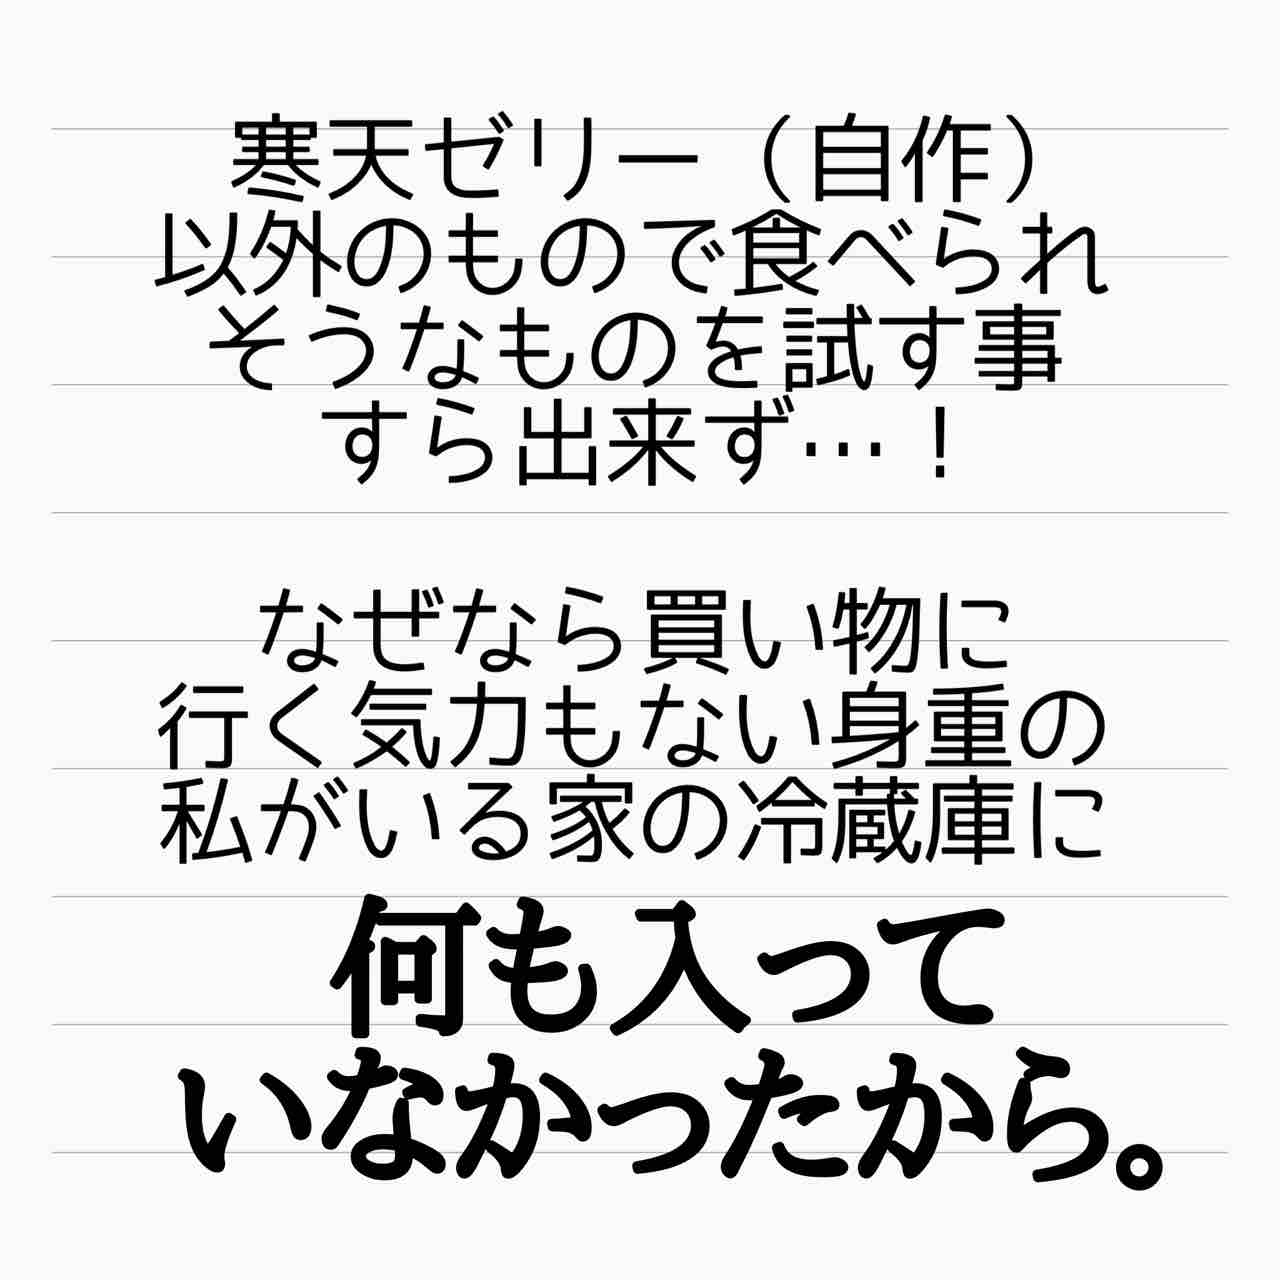 寒天ゼリー（自作）
以外のもので食べられ
そうなものを試す事
すら出来ず…！
なぜなら買い物に
行く気力もない身重の
私がいる家の冷蔵庫に
何も入って
いなかったから。